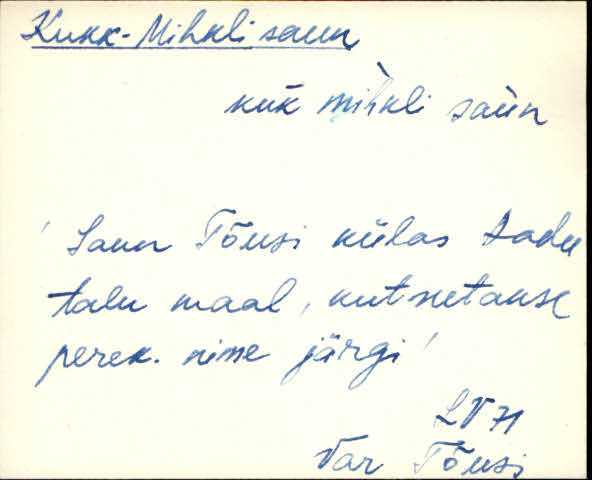 Kukk-Mihkli saun
kuk̀ mìhkli saùn
' Saun Tõusi külas Sadu
talu maal, kutsutakse
perek. nime järgi '
LV 71
Var Tõusi